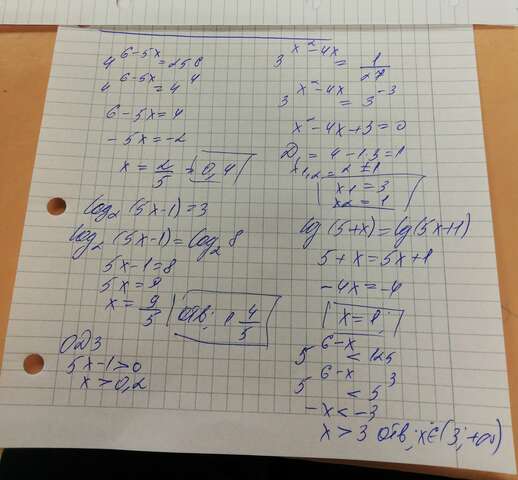 4^(6-5x) = 256
4^(6-5x) = 4^4
6-5x=4
-5x=-2
x = 2/5 = 0,4
log₂ (5x-1)=3
log₂ (5x-1)=log₂ 8
5x-1=8
5x=9
x = 9/5 Отв; 1 4/5
ОДЗ
5x-1>0
x>0,2
3^(x²-4x) = 1/27
3^(x²-4x) = 3^(-3)
x²-4x+3=0
D₁ = 4-1·3=1
x₁,₂ = 2±1
x1=3
x2=1
lg (5+x)=lg(5x+1)
5+x=5x+1
-4x=-4
x=1;
5^(6-x) <125
5^(6-x) <5^3
-x<-3
x>3 Отв; x∈(3;+∞)